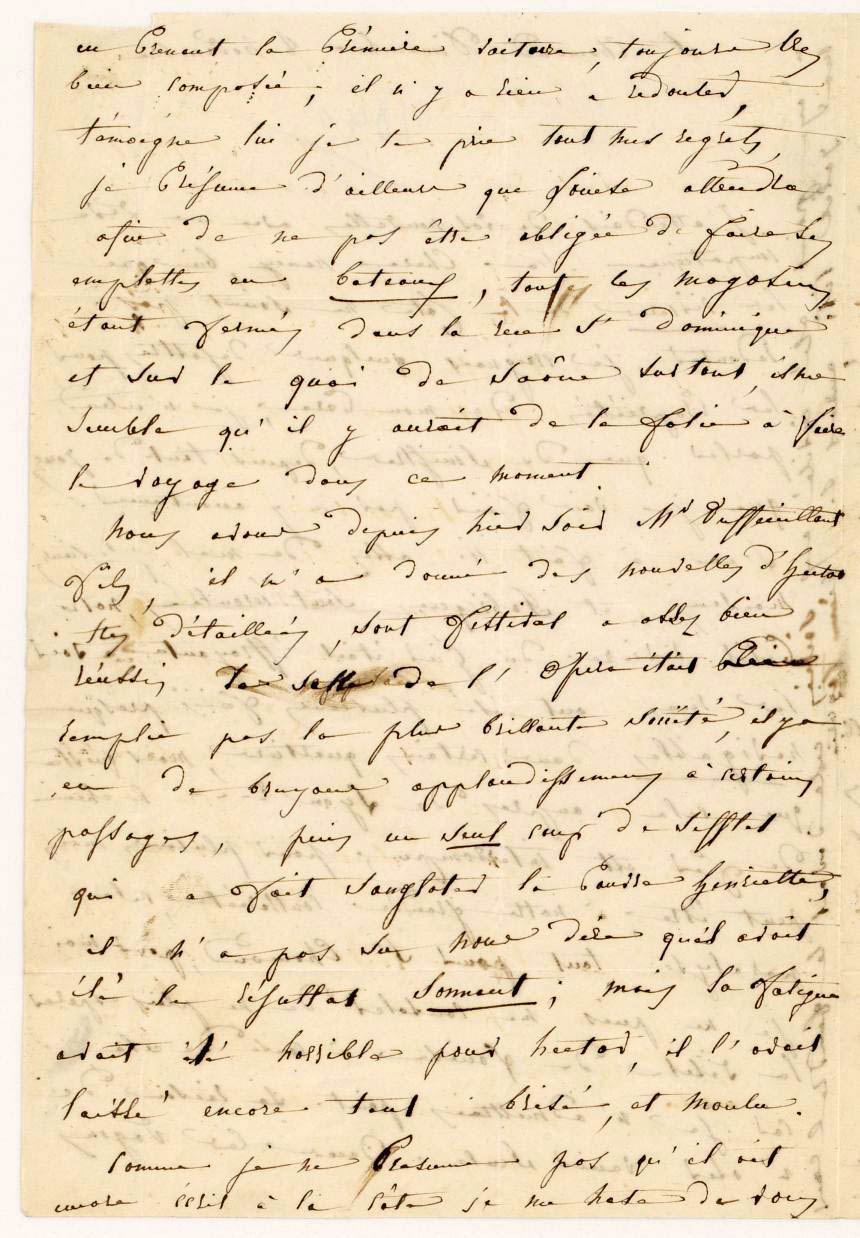 en prenant la première voiture, toujours très
bien composée; il n'y a rien à redouter,
témoigne lui je te prie tout mes regrets,
je présume d'ailleurs que Louise attendra
afin de ne pas être obligée de faire ses
emplettes en bateaux, tout les magasins
étant fermés dans la rue St Dominique
et sur le quai de Saône surtout, il me
semble qu'il y aurait de la folie à faire
le voyage dans ce moment.
nous avons depuis hier soir Mr
fils, il n'a donné des nouvelles d'hector
très détaillées, sont festival a assez bien
réussi, la salle de l'opera était
remplie pas la plus brillante société, il y a
eu de bruyans applaudissemens à certains
passages, puis un seul coup de sifflet
qui a fait sangloter la pauvre henriette,
il n'a pas su nous dire quel avait
été le résultat sonnant; mais la fatigue
avait été horrible pour hector, il l'avait
laissé encore tout brisé, et moulu.
comme je ne présume pas qu'il ait
encore écrit à la Côte je me hate de vous